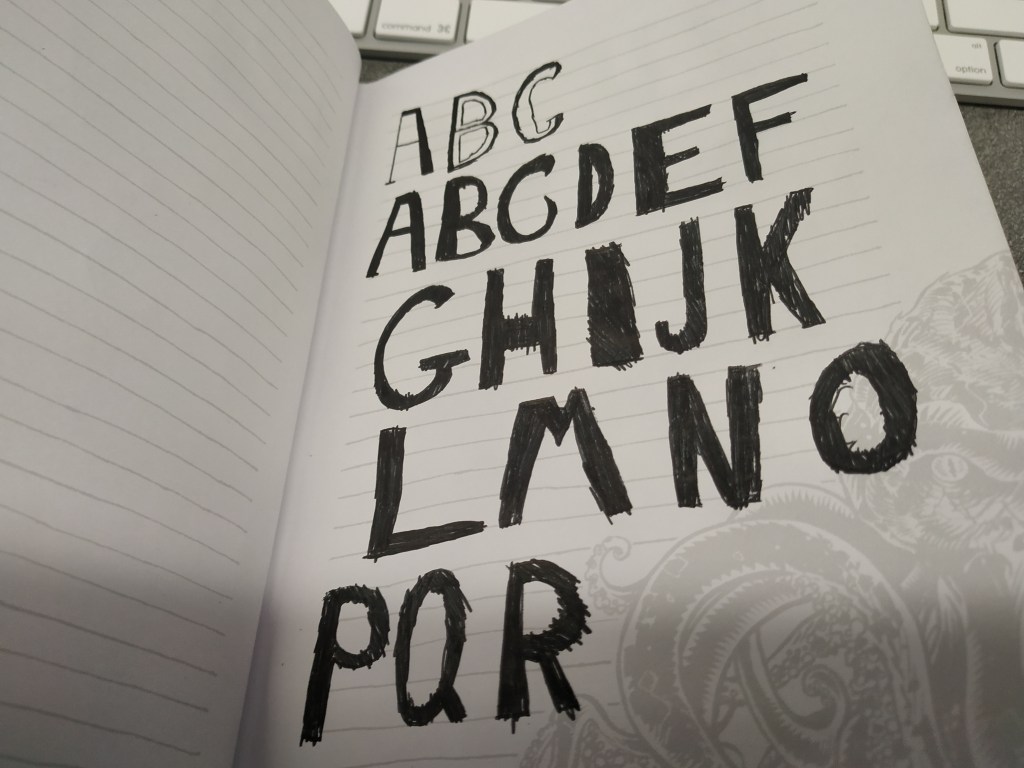 command ⌘
alt
option
ABC
ABCDEF
GHIJK
LMNO
PQR